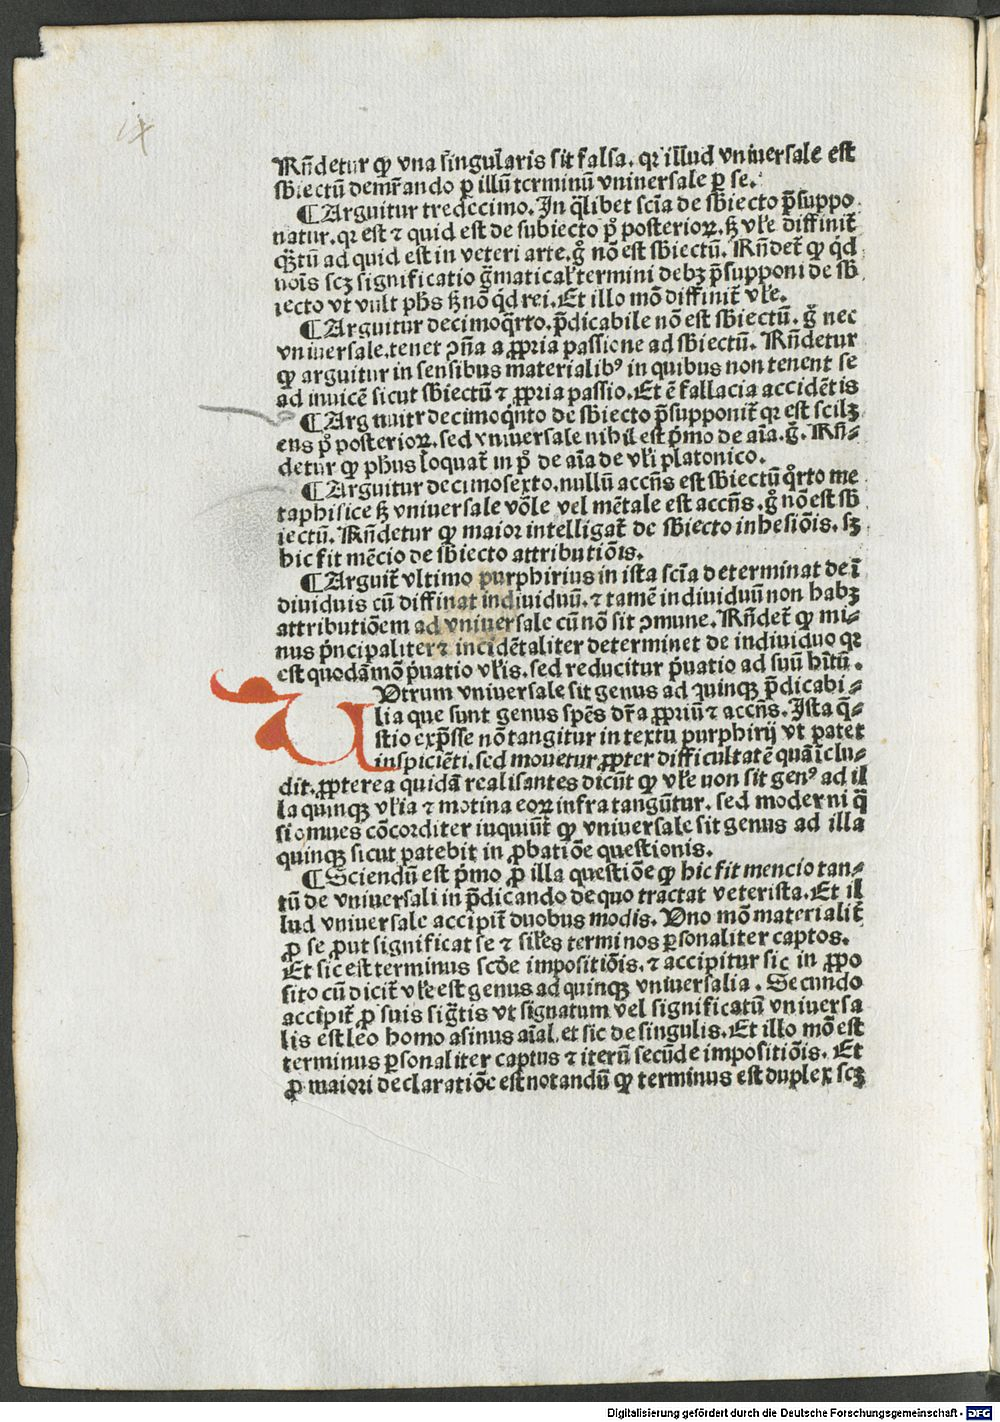 ix
Rñdetur ꝙ vna singularis sit falsa. qꝛ illud vniuersale est
sbiectū demr̄ando ꝑ illū terminū vniuersale ꝑ se.
¶Arguitur tredecimo. In q̄libet scīa de sbiecto p̄suppo
natur. qꝛ est ⁊ quid est de subiecto pº posterioꝝ. sꝫ vlr̄e diffinit̄
q̄ꝫtū ad quid est in veteri arte. gº nō est sbiectū. Rñdet̄ ꝙ q̄d
noīs scꝫ significatio g̃maticalꝭ termini debꝫ p̄supponi de sb
iecto vt vult ph̄s sꝫ nō q̄d rei. Et illo mō diffinit̄ vlr̄e.
¶Arguitur decimoq̄rto. p̄dicabile nō est sbiectū. gº nec
vniuersale. tenet ꝯñа a ꝓpria passione ad sbiectū. Rñdetur
ꝙ arguitur in sensibus materialibꝰ in quibus non tenent se
ad inuicē sicut sbiectū ⁊ ꝓpria passio. Et ē fallacia accidētis
¶Arguuitr decimoqⁱnto de sbiecto p̄supponit̄ qꝛ est scilꝫ
ens pº posterioꝝ. sed vniuersale nihil est p̄mo de aīa. gº. Rñ-
detur ꝙ ph̄us loquat̄ in pº de aīa de vlı̄ platonico.
¶Arguitur decimosexto. nullū accn̄s est sbiectū qºrto me
taphisice sꝫ vniuersale vōle vel mētale est accn̄s. gº nō est sb
iectū. Rñdetur ꝙ maior intelligat̄ de sbiecto inhesiōis. sꝫ
hic fit mēcio de sbiecto attributiōis.
¶Arguit̄ vltimo purphirius in ista scīa determinat de ī
diuiduis cū diffinat indiuiduū. ⁊ tamē indiuiduū non habꝫ
attributiōem ad vniuersale cū nō sit ꝯmune. Rñdet̄ ꝙ mi-
nus p̄ncipaliter ⁊ incidētaliter determinet de indiuiduo qꝛ
est quodāmō p̄uatio vlı̄s. sed reducitur p̄uatio ad suū hītū.
Utrum vniuersale sit genus ad quinqꝫ p̄dicabi-
lia que sunt genus spēs dr̄a ꝓpriū ⁊ accn̄s. Ista q̄-
stio exp̄sse nō tangitur in textu purphirij vt patet
inspiciēti. sed mouetur ꝓpter difficultatē quā īclu-
dit. ꝓpterea quidā realisantes dicūt ꝙ vlr̄e non sit genꝰ ad il
la quinqꝫ vlı̄a ⁊ motiua eoꝝ infra tangūtur. sed moderni q̄
si omnes cōcorditer inquiūt ꝙ vniuersale sit genus ad illa
quinqꝫ sicut patebit in ꝓbatiōe questionis.
¶Sciendū est p̄mo ꝓ illa questiōe ꝙ hic fit mencio tan-
tū de vniuersali in p̄dicando de quo tractat veterista. Et il
lud vniuersale accipit̄ duobus modis. Uno mō materialit̄
ꝓ se ꝓut significat se ⁊ silēs terminos ꝑsonaliter captos.
Et sic est terminus scd̄e impositiōis. ⁊ accipitur sic in ꝓpo
sito cū dicit̄ vlr̄e est genus ad quinqꝫ vniuersalia. Secundo
accipit̄ ꝓ suis sig̃tis vt signatum vel significatū vniuersa
lis est leo homo asinus aīal. et sic de singulis. Et illo mō est
terminus ꝑsonaliter captus ⁊ iterū secūde impositiōis. Et
ꝓ maiori declaratiōe est notandū ꝙ terminus est duplex scꝫ
Digitalisierung gefördert durch die Deutsche Forschungsgemeinschaft - DFG